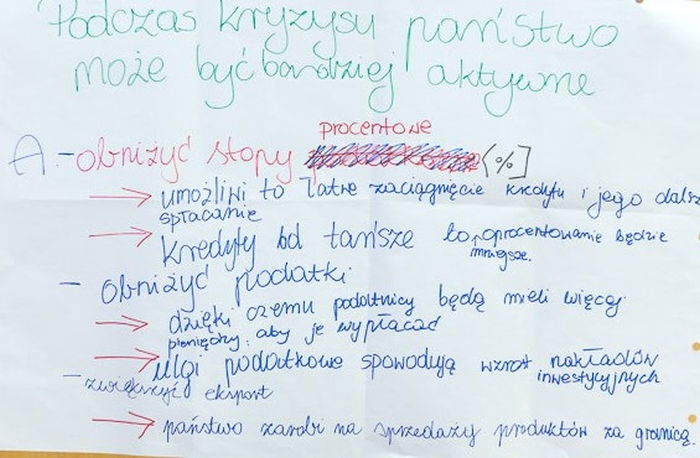 Podczas kryzysu państwo
może być bardziej aktywne
procentowe
A. - obniżyć stopy (%]
→ umożliwi to łatwe zaciągnięcie kredytu i jego dalsz
spłacanie
→ kredyty bd tańsze bo oprocentowanie będzie
mniejsze.
- obniżyć podatki
→ dzięki czemu podatnicy będą mieli więcej
pieniędzy, aby je wypłacać
→ ulgi podatkowe spowodują wzrost nakładów
inwestycyjnych
- zwiększyć eksport
→ państwo zarobi na sprzedaży produktów za granicą.